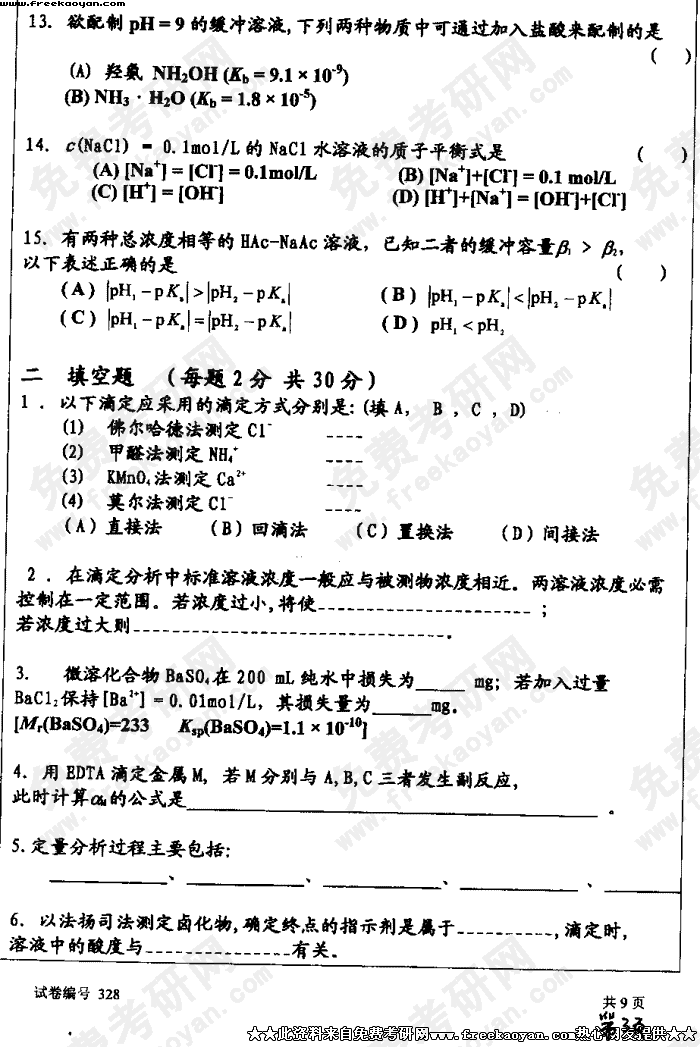 www.freekaoyan.com
13. 欲配制 pH = 9 的缓冲溶液, 下列两种物质中可通过加入盐酸来配制的是
( )
(A) 羟氨 NH₂OH (K_b = 9.1 × 10⁻⁹)
(B) NH₃ · H₂O (K_b = 1.8 × 10⁻⁵)
14. c(NaCl) = 0.1mol/L 的 NaCl 水溶液的质子平衡式是 ( )
(A) [Na⁺] = [Cl⁻] = 0.1mol/L (B) [Na⁺]+[Cl⁻] = 0.1 mol/L
(C) [H⁺] = [OH⁻] (D) [H⁺]+[Na⁺] = [OH⁻]+[Cl⁻]
15. 有两种总浓度相等的 HAc-NaAc 溶液, 已知二者的缓冲容量β₁ > β₂,
以下表述正确的是 ( )
(A) |pH₁ - pKₐ| > |pH₂ - pKₐ| (B) |pH₁ - pKₐ| < |pH₂ - pKₐ|
(C) |pH₁ - pKₐ| = |pH₂ - pKₐ| (D) pH₁ < pH₂
二 填空题 (每题2分 共30分)
1 . 以下滴定应采用的滴定方式分别是: (填 A, B , C , D)
(1) 佛尔哈德法测定 Cl⁻ ----
(2) 甲醛法测定 NH₄⁺ ----
(3) KMnO₄ 法测定 Ca²⁺ ----
(4) 莫尔法测定 Cl⁻ ----
(A) 直接法 (B) 回滴法 (C) 置换法 (D) 间接法
2 . 在滴定分析中标准溶液浓度一般应与被测物浓度相近。两溶液浓度必需
控制在一定范围。若浓度过小, 将使---------------------- ;
若浓度过大则--------------------------------。
3. 微溶化合物 BaSO₄ 在 200 mL 纯水中损失为_____ mg; 若加入过量
BaCl₂ 保持 [Ba²⁺] = 0.01mol/L, 其损失量为______mg。
[Mᵣ(BaSO₄)=233 Kₛₚ(BaSO₄)=1.1 × 10⁻¹⁰]
4. 用 EDTA 滴定金属 M, 若 M 分别与 A, B, C 三者发生副反应,
此时计算 α_M 的公式是________________________________________ 。
5. 定量分析过程主要包括:
____________、____________、____________、____________、____________
6. 以法扬司法测定卤化物, 确定终点的指示剂是属于----------, 滴定时,
溶液中的酸度与---------------有关。
试卷编号 328
共 9 页
第3页
★★此资料来自免费考研网www.freekaoyan.com热心网友提供★★
免费考研网
www.freekaoyan.com